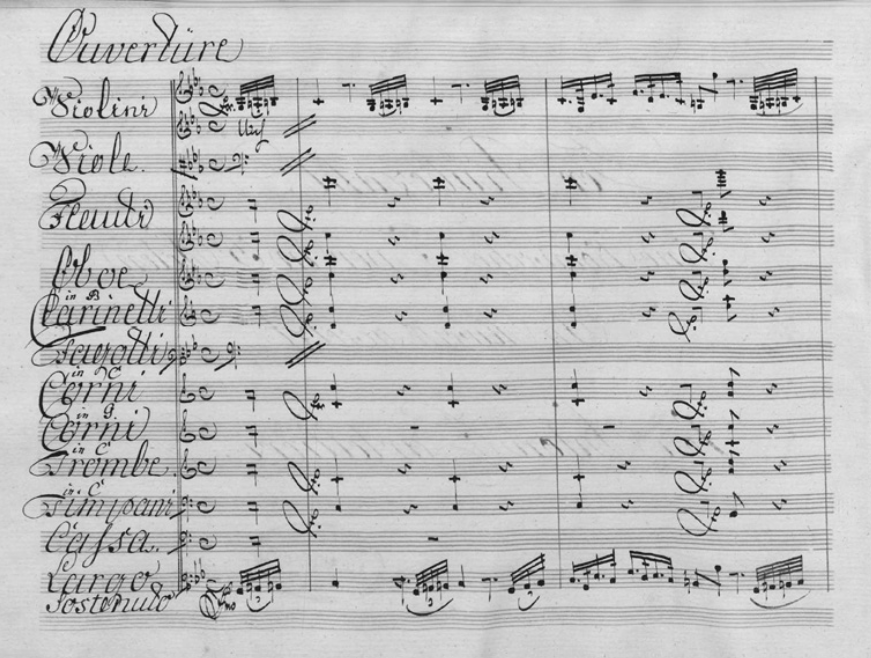 Ouvertüre
Violini
Unis
Viole.
Flauti
Oboe
in B
Clarinetti
Fagotti
in C
Corni
in g.
Corni
in C
Trombe.
in C
Timpani
Cassa.
Largo
Sostenuto